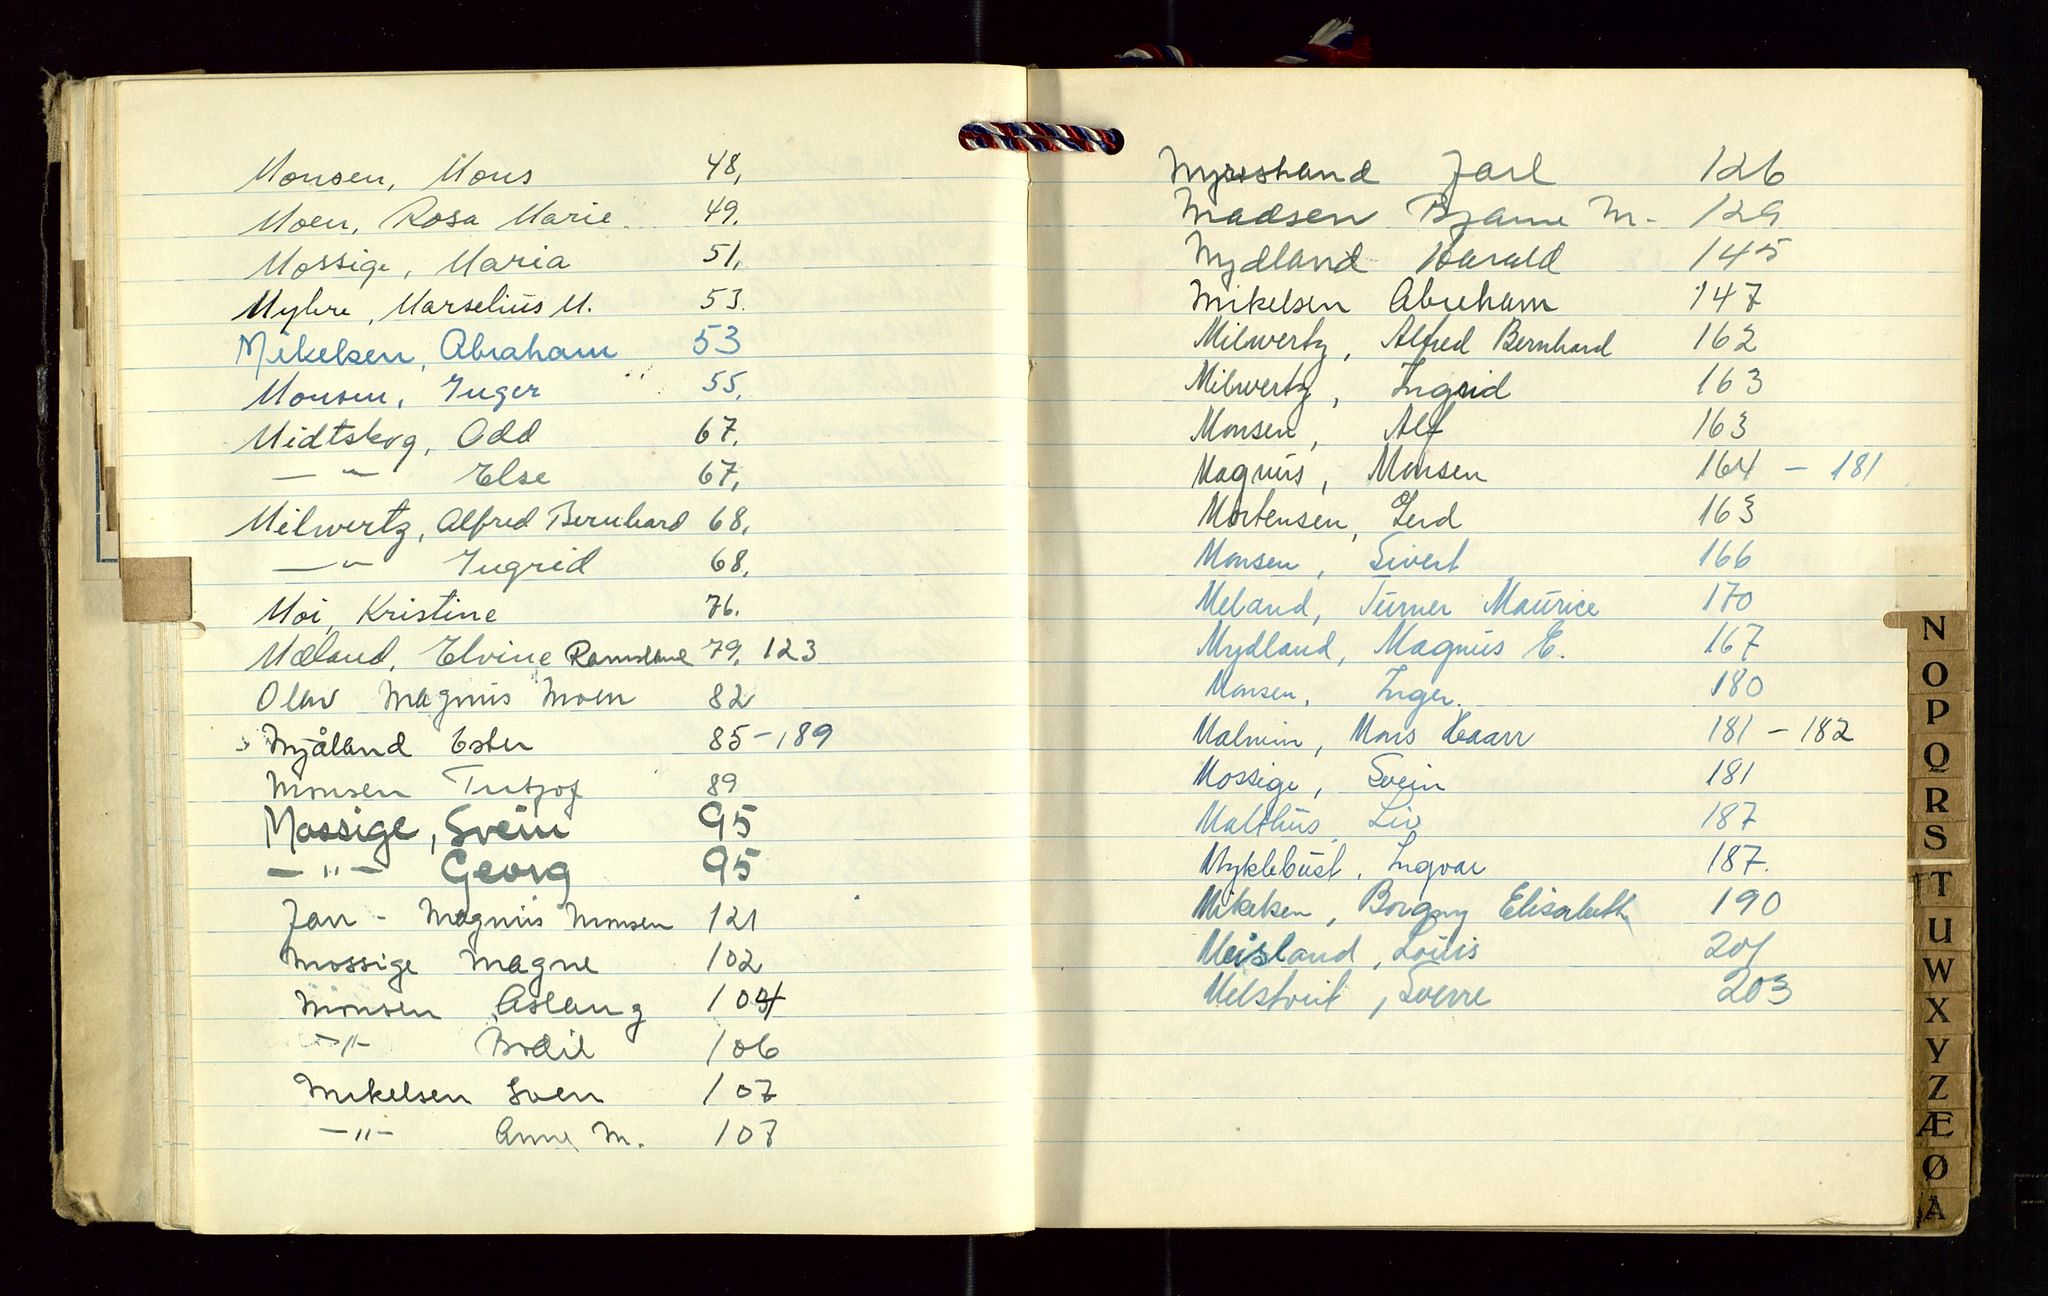 Monsen, Mons 48,
Moen, Rosa Marie 49.
Mossige, Maria 51,
Myhre, Marselius M. 53.
Mikelsen, Abraham 53
Monsen, Inger 55,
Midtskog, Odd 67,
— " Else 67,
Milwertz, Alfred Bernhard 68,
— " Ingrid 68,
Moi, Kristine 76.
Mæland, Elvine Ramsland 79, 123
Olav Magnus Moen 82
Mjåland Ester 85 – 189
Monsen 89
Mossige, Svein 95
— " — Georg 95
Jan - Magnus Monsen 121
Mossige Magne 102
Monsen Aslaug 104
— " — Bodil 106
Mikelsen Sven 107
— " — Anne M. 107
Jarl 126
Madsen Bjarne M. 129
Mydland Harald 145
Mikelsen Abreham 147
Milwertz, Alfred Bernhard 162
Milwertz, Ingrid 163
Monsen, Alf 163
Magnus, Monsen 164 – 181
Mortensen, Gerd 163
Monsen, Sivert 166
Meland, Turner Maurice 170
Mydland, Magnus E. 167
Monsen, Inger. 180
Malmin, Mons Haarr 181 – 182
Mossige, Svein 181
Malthus, Liv 187
Myklebust, Ingvar 187.
Mikelsen, Borgny Elisabeth 190
Meisland, Louis 201
Melstveit, Sverre 203
N
O
P
Q
R
S
T
U
W
X
Y
Z
Æ
Ø
Å